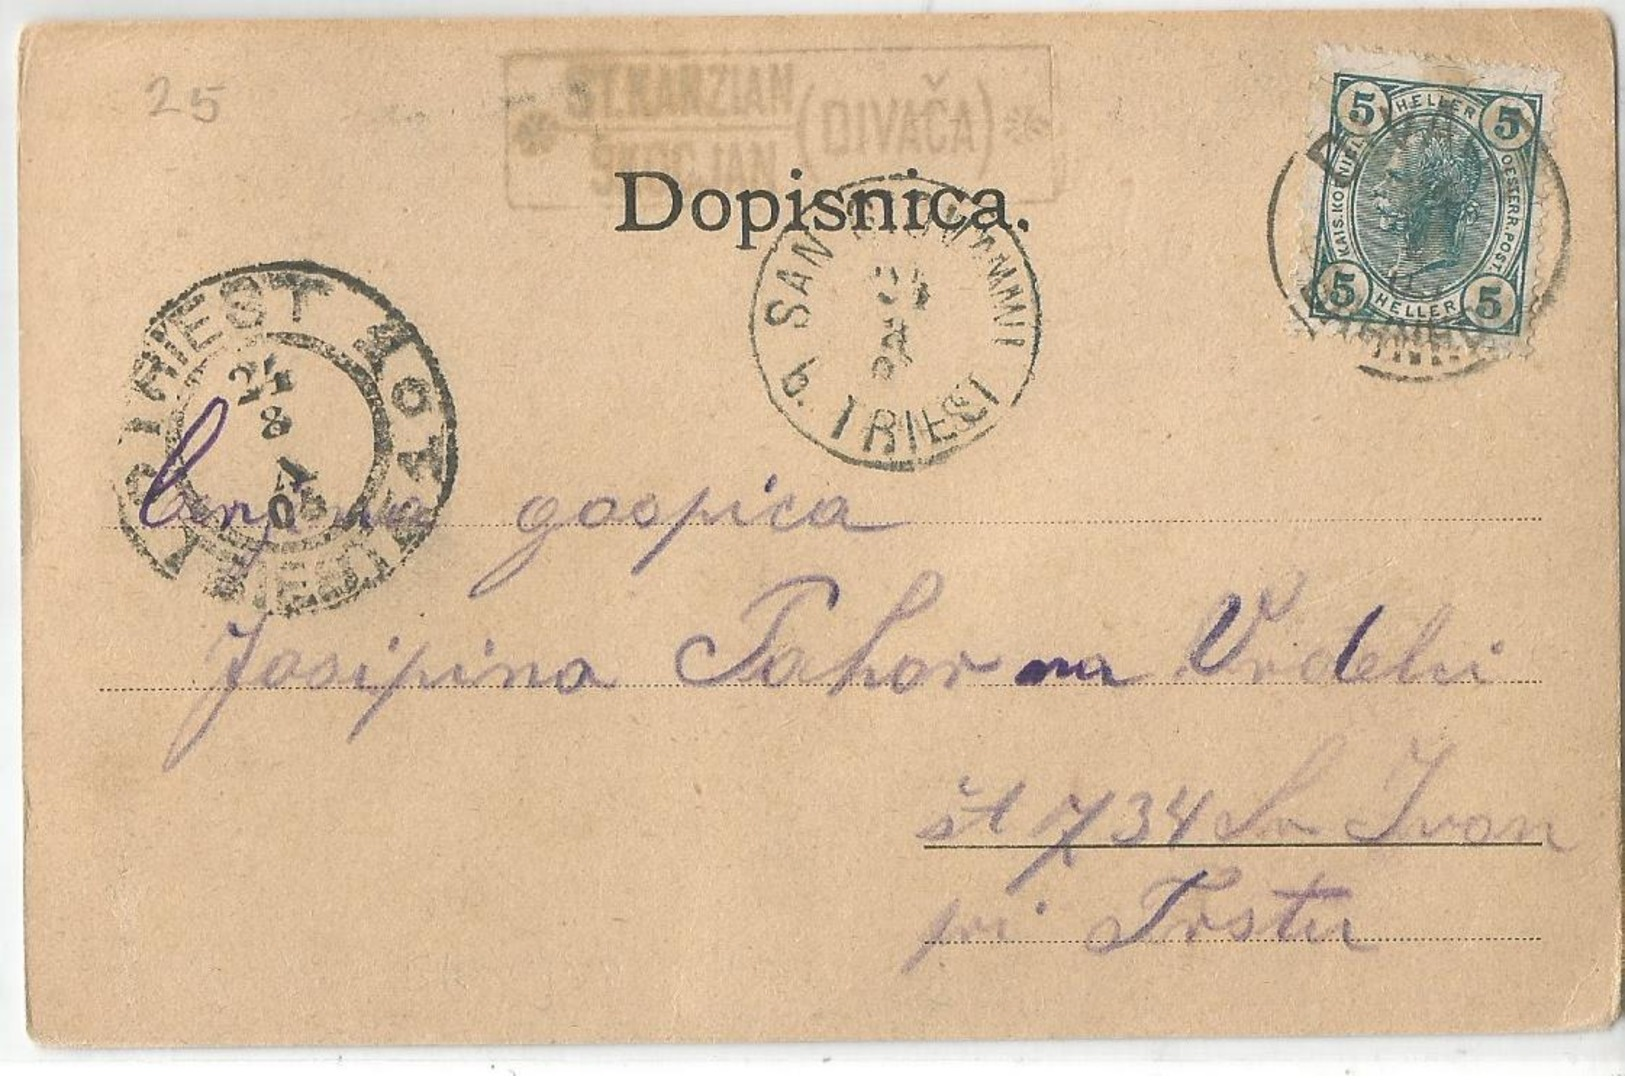 25
ST.KANZIAN
ŠKOCJAN
(DIVAČA)
Dopisnica.
5 HELLER 5
KAIS.KOENIGL. OESTERR.POST.
5 HELLER 5
SAN GIOVANNI
24
b. TRIEST
TRIEST 1
24
8
05
TRIEST
gospica
Josipina Tahor na Vrdelu
št 734 Sv Ivan
pri Trstu